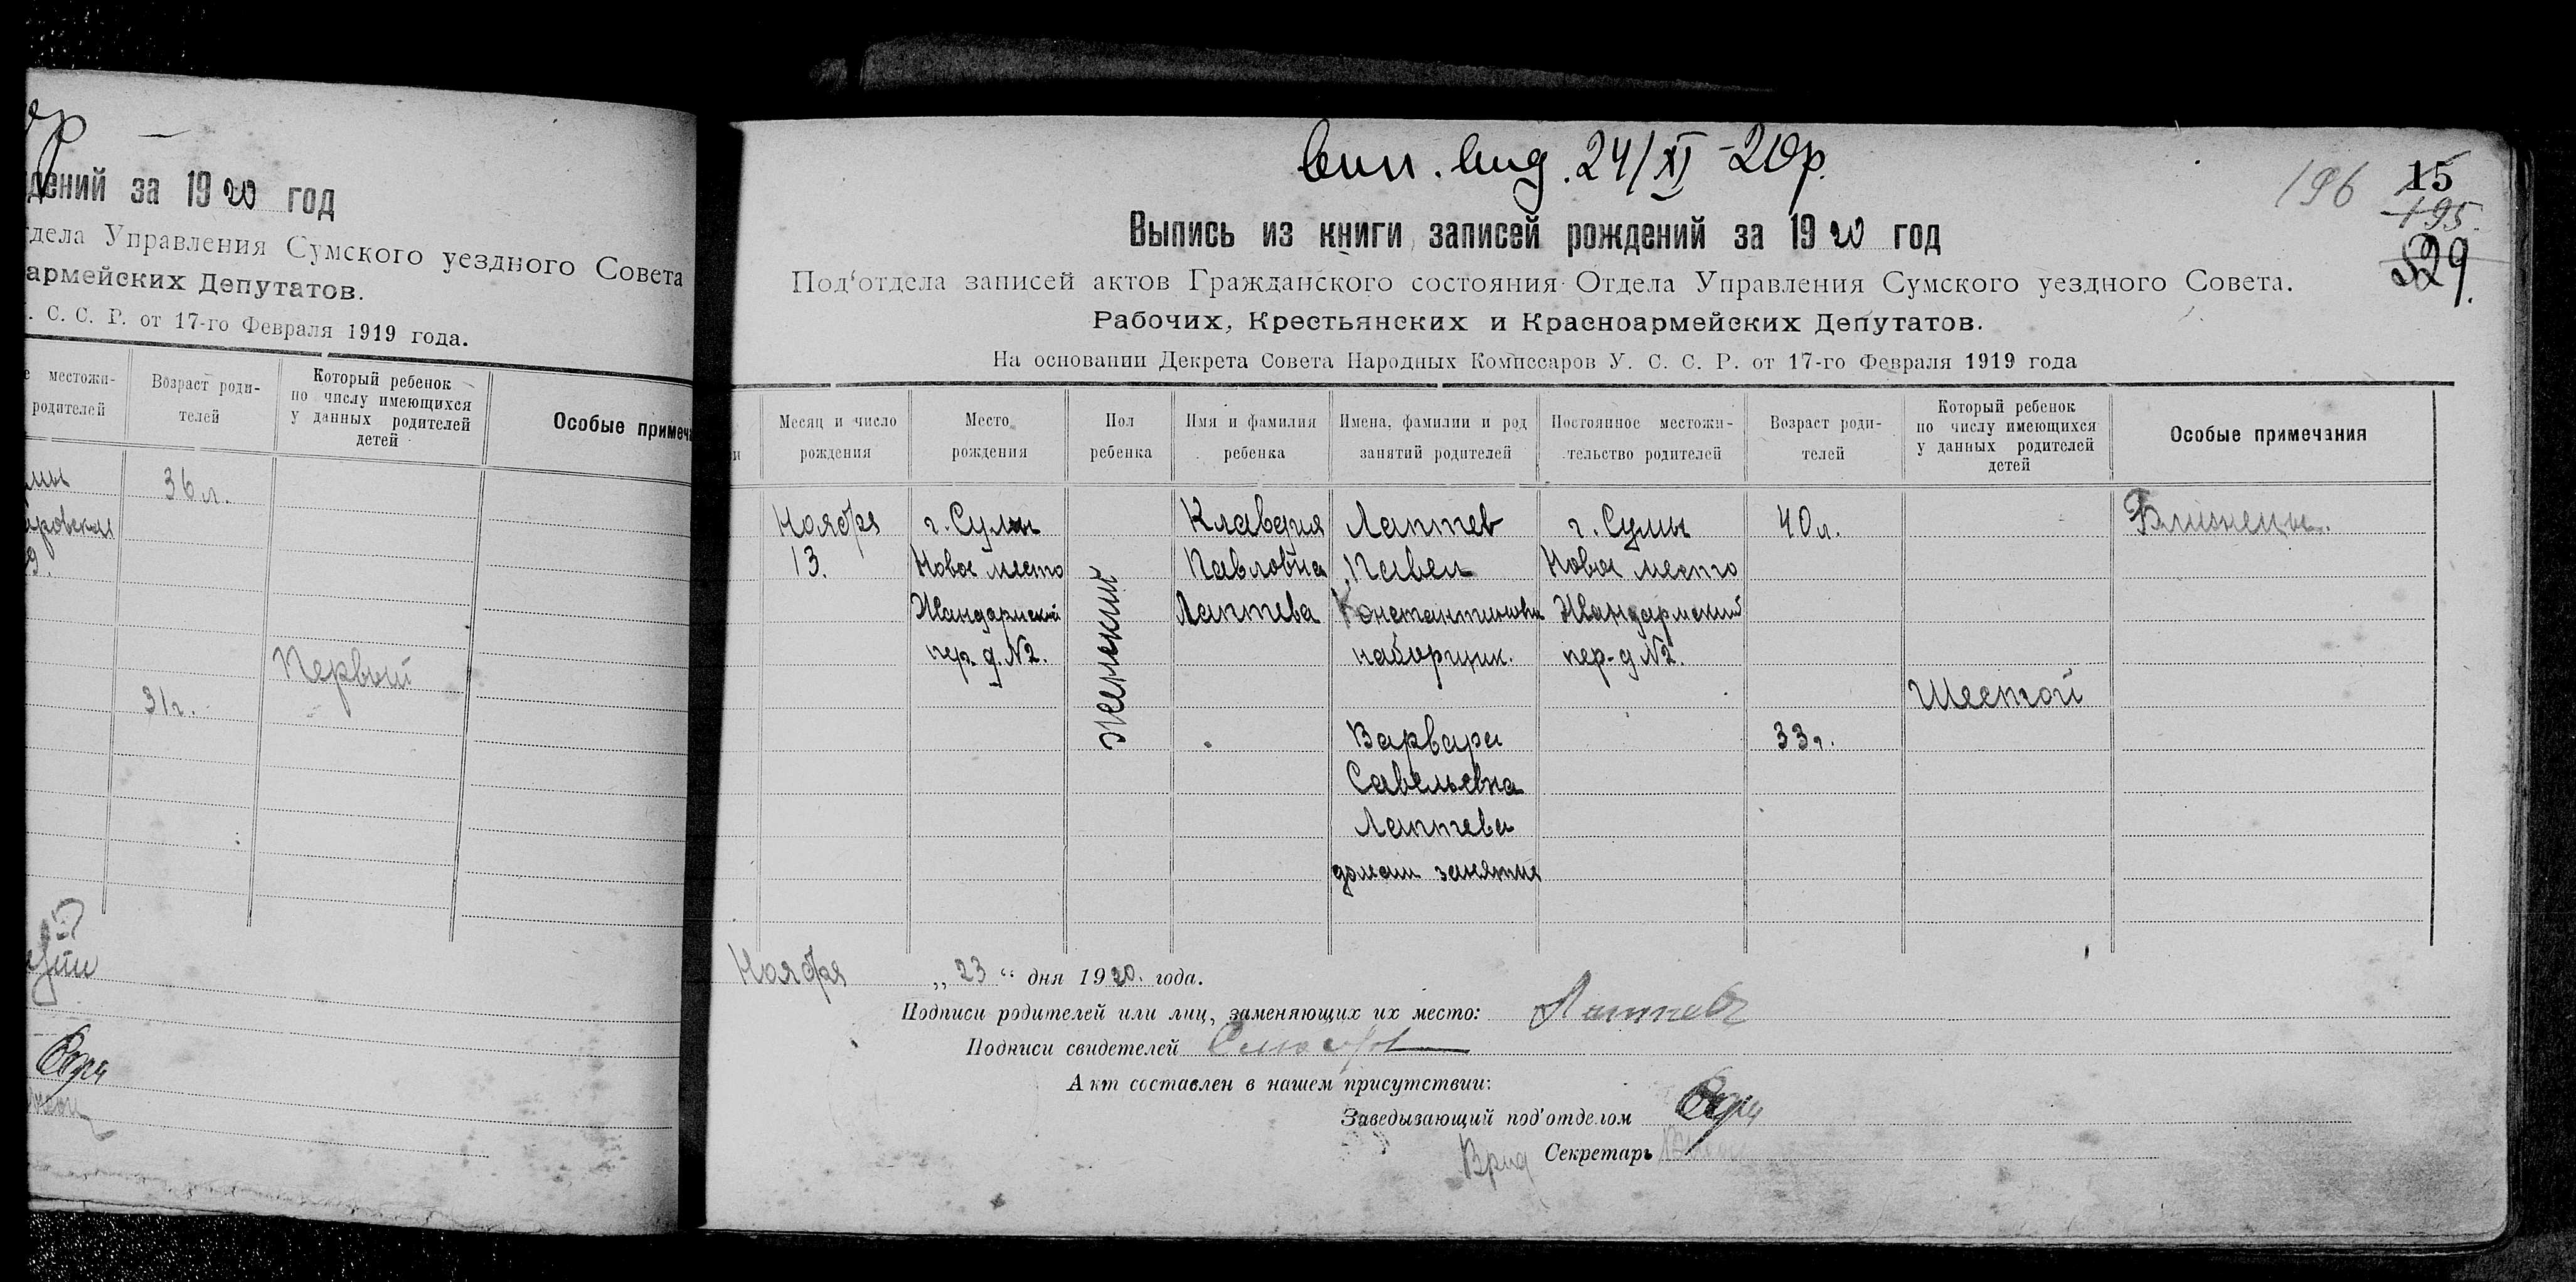 дений за 1920 год
тдела Управления Сумского уездного Совета
армейских Депутатов.
. С. С. Р. от 17-го Февраля 1919 года.
е местожи-
родителей
Возраст роди-
телей
Который ребенок
по числу имеющихся
у данных родителей
детей
Особые примеча
36 л.
Первый
31 г.
24/XI-20 р.
196
15
195.
529.
Выпись из книги записей рождений за 1920 год
Под'отдела записей актов Гражданского состояния Отдела Управления Сумского уездного Совета.
Рабочих, Крестьянских и Красноармейских Депутатов.
На основании Декрета Совета Народных Комиссаров У. С. С. Р. от 17-го Февраля 1919 года
и
Месяц и число
рождения
Место
рождения
Пол
ребенка
Имя и фамилия
ребенка
Имена, фамилии и род
занятий родителей
Постоянное местожи-
тельство родителей
Возраст роди-
телей
Который ребенок
по числу имеющихся
у данных родителей
детей
Особые примечания
Ноября
13.
г. Сумы
Новое место
Жандармский
пер. д. №2.
женский
Клавдия
Павловна
Лаптева
Лаптев
Павел
Константинович
наборщик.
Варвара
Савельевна
Лаптева
домаш занятия
г. Сумы
Новое место
Жандармский
пер. д №2.
40 л.
33 г.
Шестой
Близнецы.
Ноября „ 23 “ дня 1920. года.
Подписи родителей или лиц, заменяющих их место: Лаптев
Подписи свидетелей
Акт составлен в нашем присутствии:
Заведывающий под'отделом
Врид Секретарь